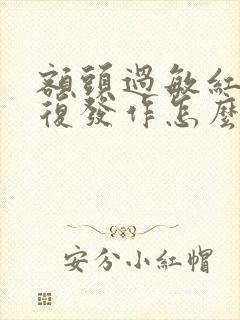 額頭過敏紅
復發作怎麼
安分小紅帽